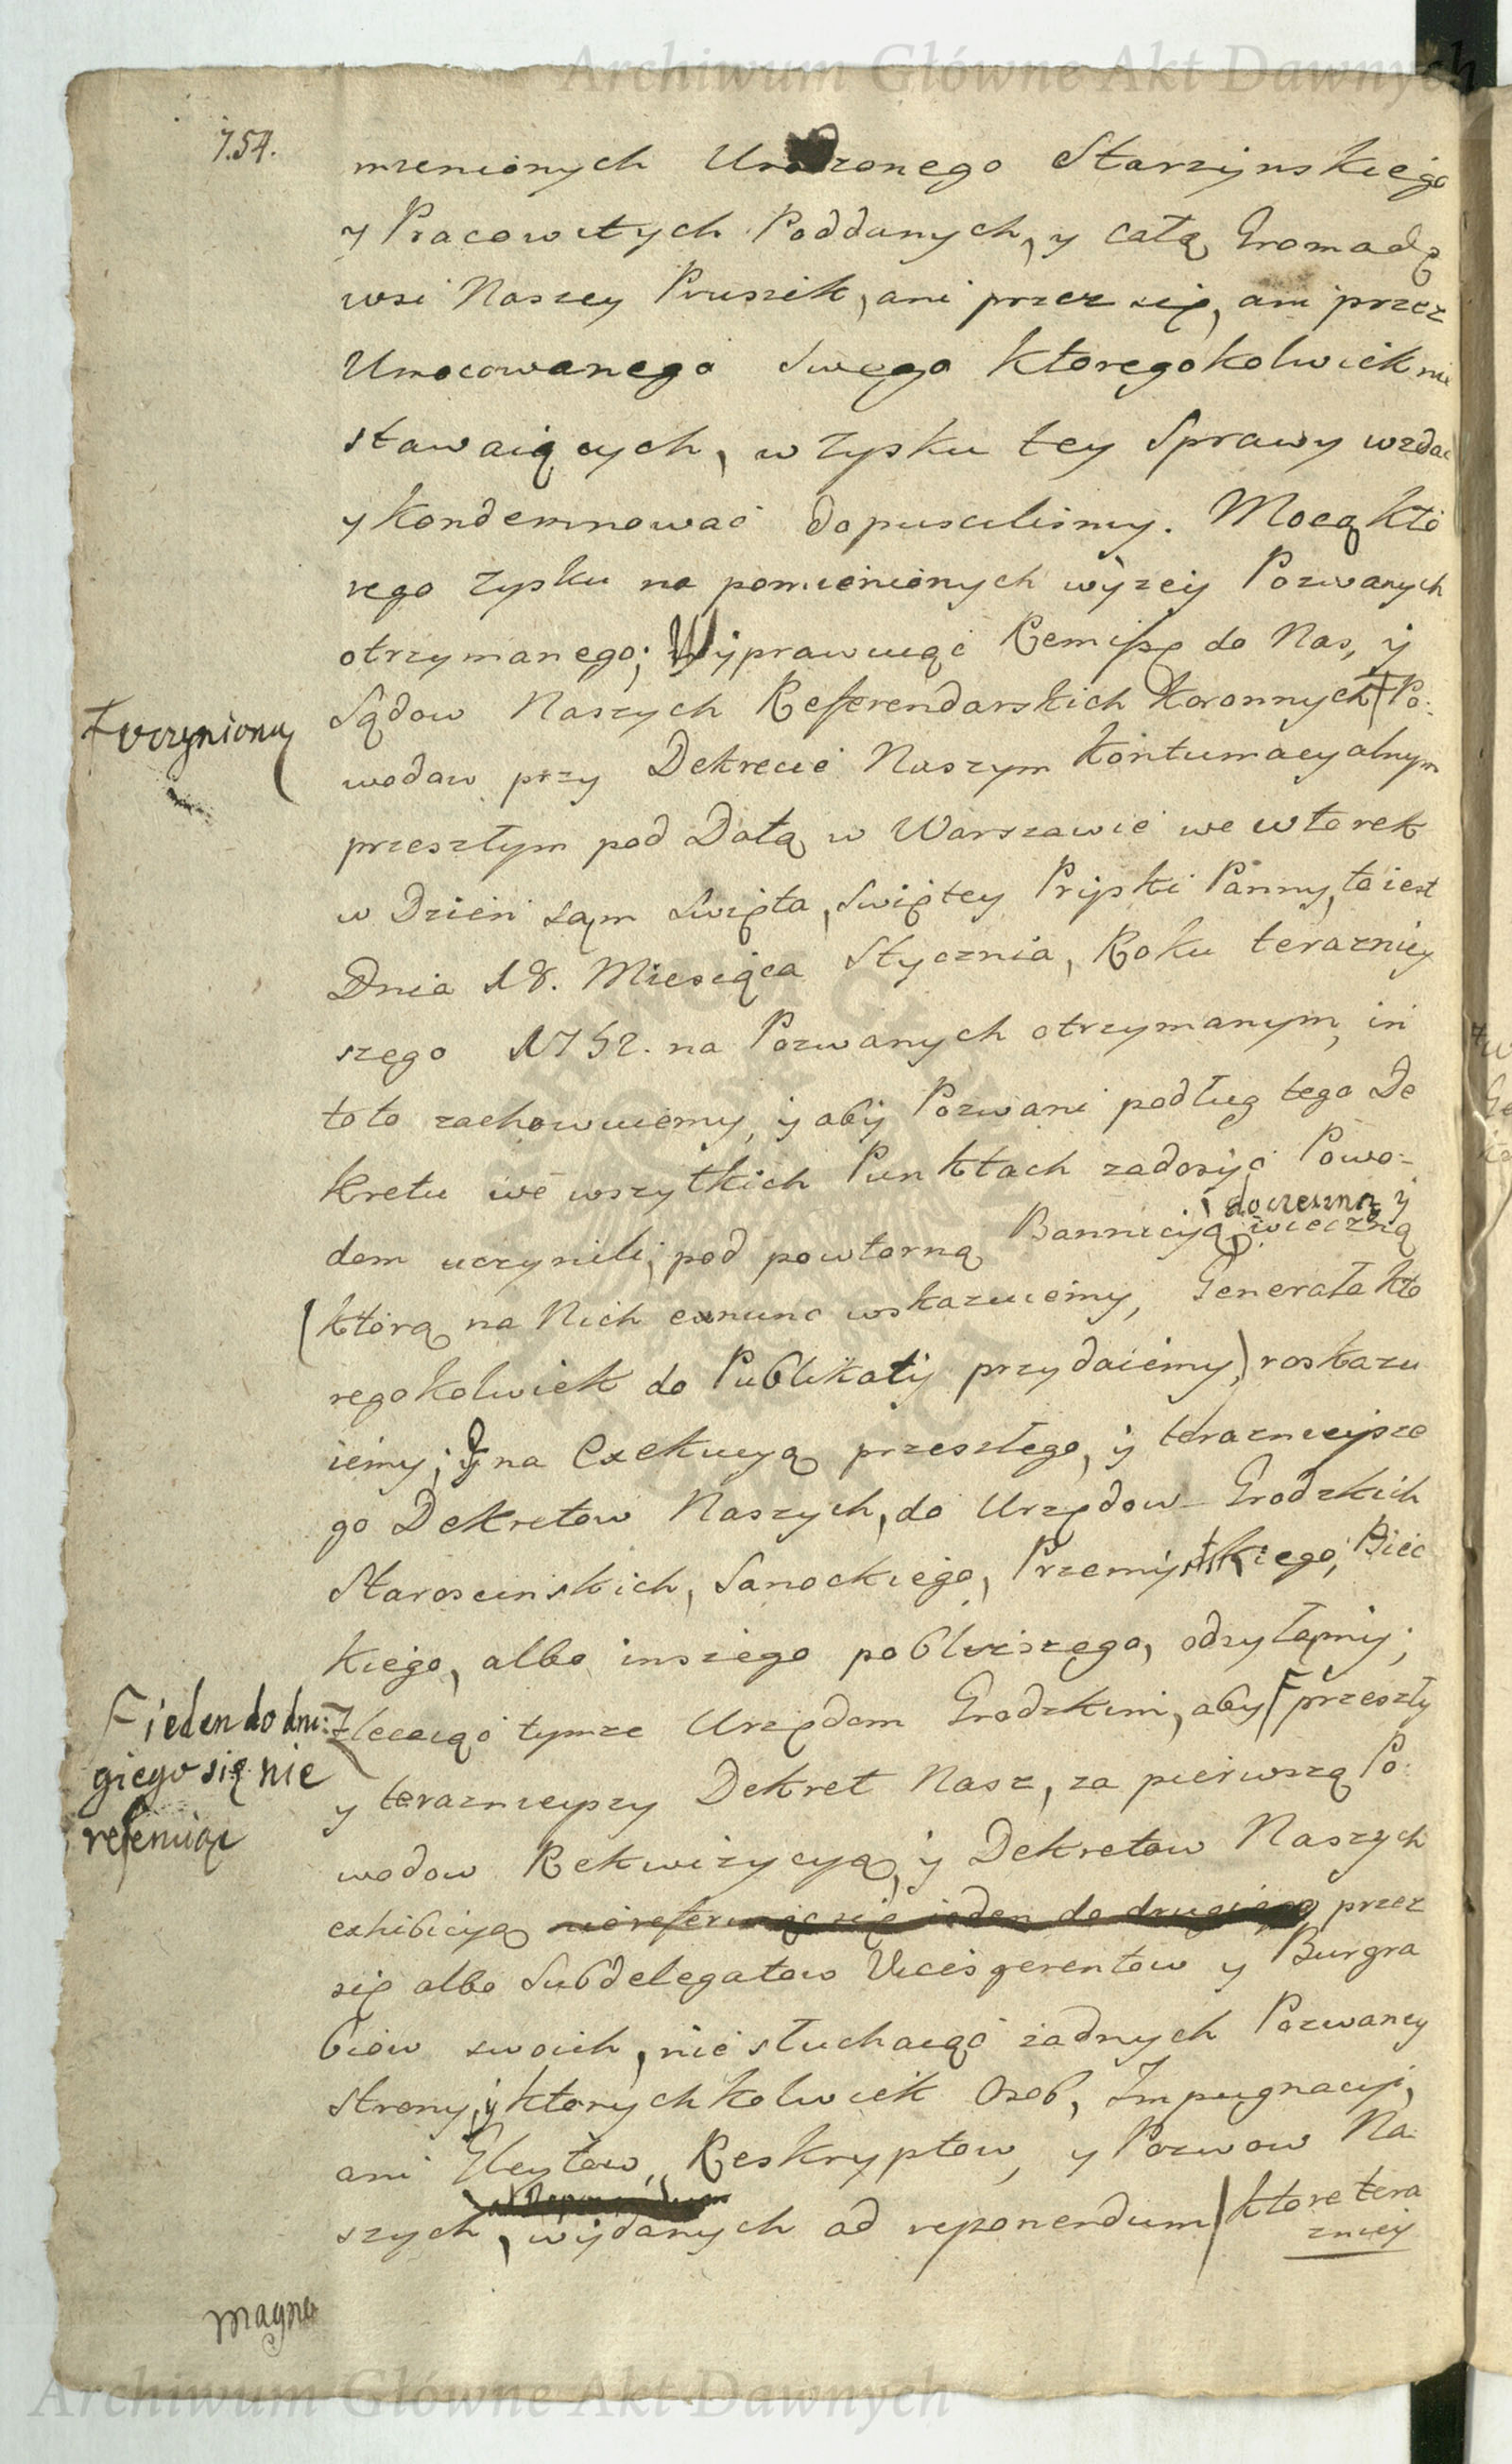 Archiwum Główne Akt Dawnych
754.
mienionych Urodzonego Starzynskiego
y Pracowitych Poddanych, y całą Gromadę
wsi Naszey Pruszik, ani przez się, ani przez
Umocowanego Swego ktoregokolwiek nie
stawaiących, w zysku tey Sprawy wzdać
y kondemnować dopuscilismy. Mocą kto
rego zysku na pomienionych wyzey Pozwanych
otrzymanego; Wyprawuiąc Remissę do Nas, y
Sądow Naszych Referendarskich Koronnych Ł Po-
Ł uczynioną
wodow przy Dekrecie Naszym Kontumacyalnym
przeszłym pod Datą w Warszawie we wtorek
w Dzień sąm Swięta, Swiętey Pryski Panny, to iest
Dnia 18. Miesiąca Stycznia, Roku terazniey
szego 1752. na Pozwanych otrzymanym, in
toto zachowuiemy, y aby Pozwani podług tego De
kretu we wszytkich Punktach zadosyć Powo-
doczesną y
dom uczynili, pod powtorną Bannicyą wieczną
(ktorą na Nich exnunc wskazuiemy, Generała kto
regokolwiek do Publikaty przydaiemy) roskazu
iemy; Y na Exekucyą przeszłego, y teraznieysze
go Dekretow Naszych, do Urzędow Grodzkich
Staroscinskich, Sanockiego, Przemyskiego, Biec
kiego, albo inszego poblizszego, odsyłamy;
Zlecaiąc tymze Urzędom Grodzkim, aby F przeszły
F ieden do dru:
giego się nie
referuiąc
y teraznieyszy Dekret Nasz, za pierwszą Po
wodow Rekwizycyą, y Dekretow Naszych
exhibicyą nie referuiąc się ieden do drugiego przez
się albo Subdelegatow Vicesgerentow y Burgra
biow swoich, nie słuchaiąc żadnych Pozwaney
Strony, y ktorychkolwiek Osob, Impugnacyi,
ani Gleytow, Reskryptow, y Pozwow Na
szych, wydanych ad reponendum ktore tera
zniey
Magna
Archiwum Główne Akt Dawnych